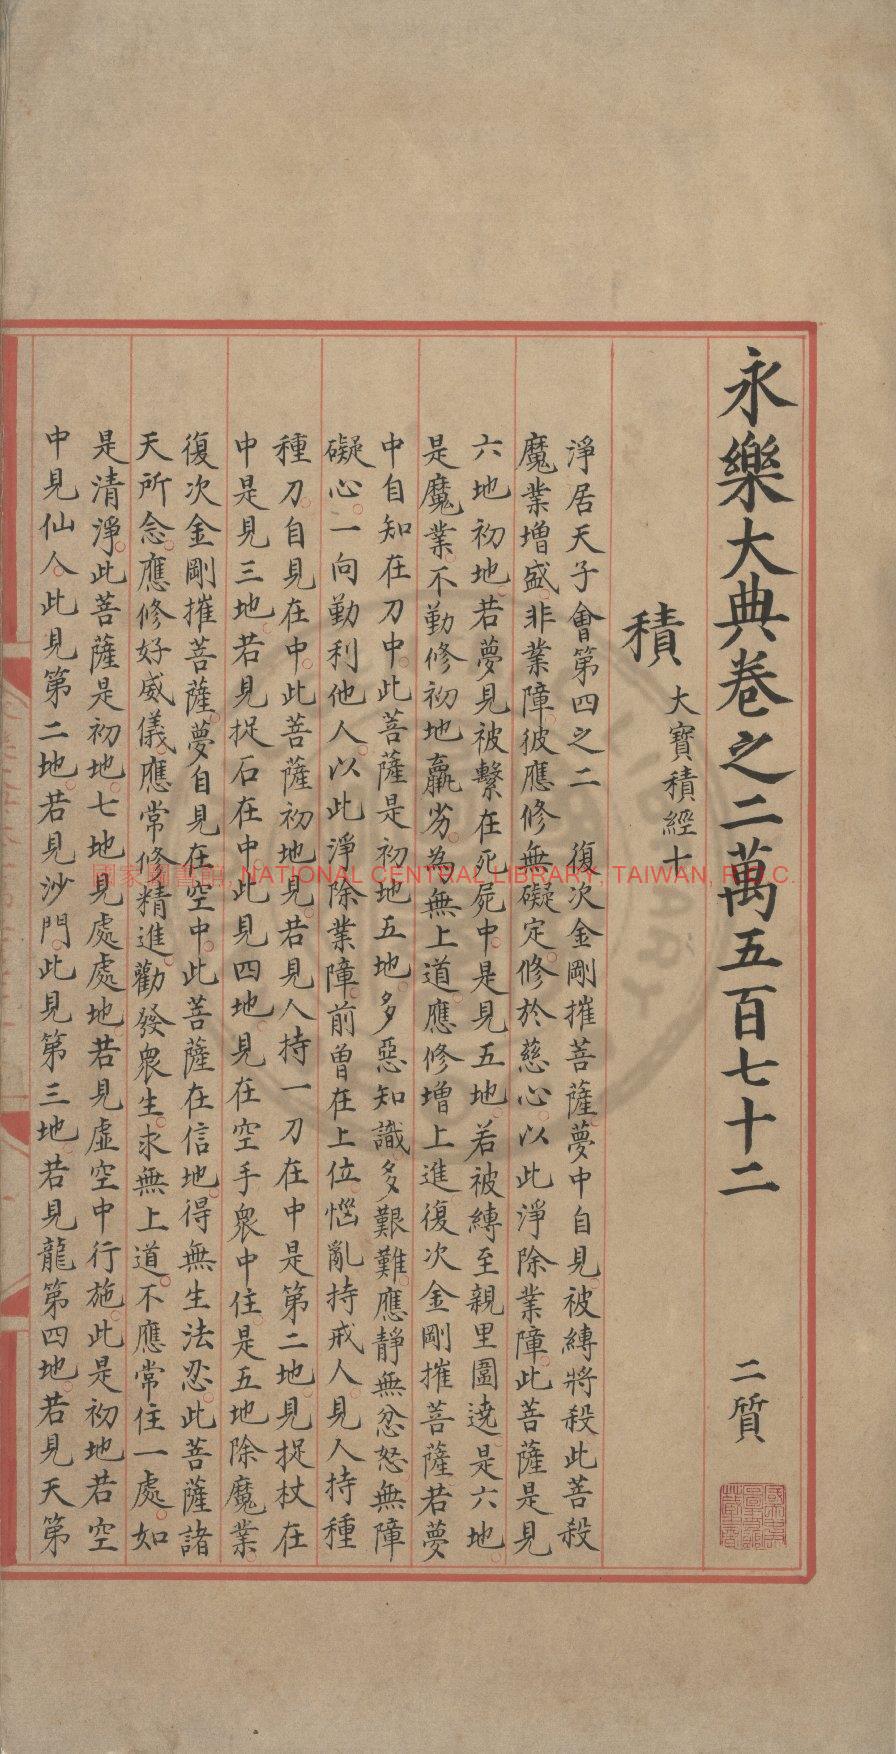 永樂大典卷之二萬五百七十二 二質
積 大寶積經十
淨居天子會第四之二 復次金剛摧菩薩。夢中自見。被縛將殺此菩殺
魔業增盛。非業障。彼應修無礙定。修於慈心。以此淨除業障。此菩薩是見
六地初地。若夢見被繫在死屍中。是見五地。若被縛至親里圍遶。是六地。
是魔業。不勤修初地羸劣。為無上道。應修增上進復次金剛摧菩薩若夢
中自知在刀中。此菩薩是初地五地。多惡知識。多艱難。應靜無忿怒。無障
礙心。一向勤利他人。以此淨除業障。前曾在上位。惱亂持戒人。見人持種
種刀。自見在中。此菩薩初地見。若見人持一刀在中是第二地。見捉杖在
中是見三地。若見捉石在中。此見四地。見在空手衆中住。是五地除魔業。
復次金剛摧菩薩。夢自見在空中。此菩薩在信地。得無生法忍。此菩薩諸
天所念。應修好威儀。應常修精進。勸發衆生。求無上道。不應常住一處。如
是清淨。此菩薩是初地。七地見處處地。若見虛空中行施。此是初地若空
中見仙人。此見第二地。若見沙門。此見第三地。若見龍第四地。若見天第
國家圖書館, NATIONAL CENTRAL LIBRARY, TAIWAN, R.O.C.